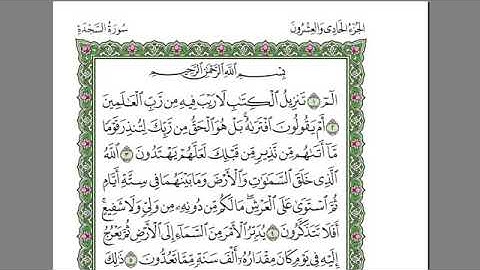 الجزء الحادي والعشرون
سورة السجدة
بِسْمِ ٱللَّهِ ٱلرَّحْمَٰنِ ٱلرَّحِيمِ
الٓمٓ ١ تَنزِيلُ ٱلْكِتَٰبِ لَا رَيْبَ فِيهِ مِن رَّبِّ ٱلْعَٰلَمِينَ
٢ أَمْ يَقُولُونَ ٱفْتَرَىٰهُ بَلْ هُوَ ٱلْحَقُّ مِن رَّبِّكَ لِتُنذِرَ قَوْمًا
مَّآ أَتَىٰهُم مِّن نَّذِيرٍ مِّن قَبْلِكَ لَعَلَّهُمْ يَهْتَدُونَ ٣ ٱللَّهُ
ٱلَّذِى خَلَقَ ٱلسَّمَٰوَٰتِ وَٱلْأَرْضَ وَمَا بَيْنَهُمَا فِى سِتَّةِ أَيَّامٍ
ثُمَّ ٱسْتَوَىٰ عَلَى ٱلْعَرْشِ مَا لَكُم مِّن دُونِهِۦ مِن وَلِىٍّ وَلَا شَفِيعٍ
أَفَلَا تَتَذَكَّرُونَ ٤ يُدَبِّرُ ٱلْأَمْرَ مِنَ ٱلسَّمَآءِ إِلَى ٱلْأَرْضِ ثُمَّ يَعْرُجُ
إِلَيْهِ فِى يَوْمٍ كَانَ مِقْدَارُهُۥٓ أَلْفَ سَنَةٍ مِّمَّا تَعُدُّونَ ٥ ذَٰلِكَ